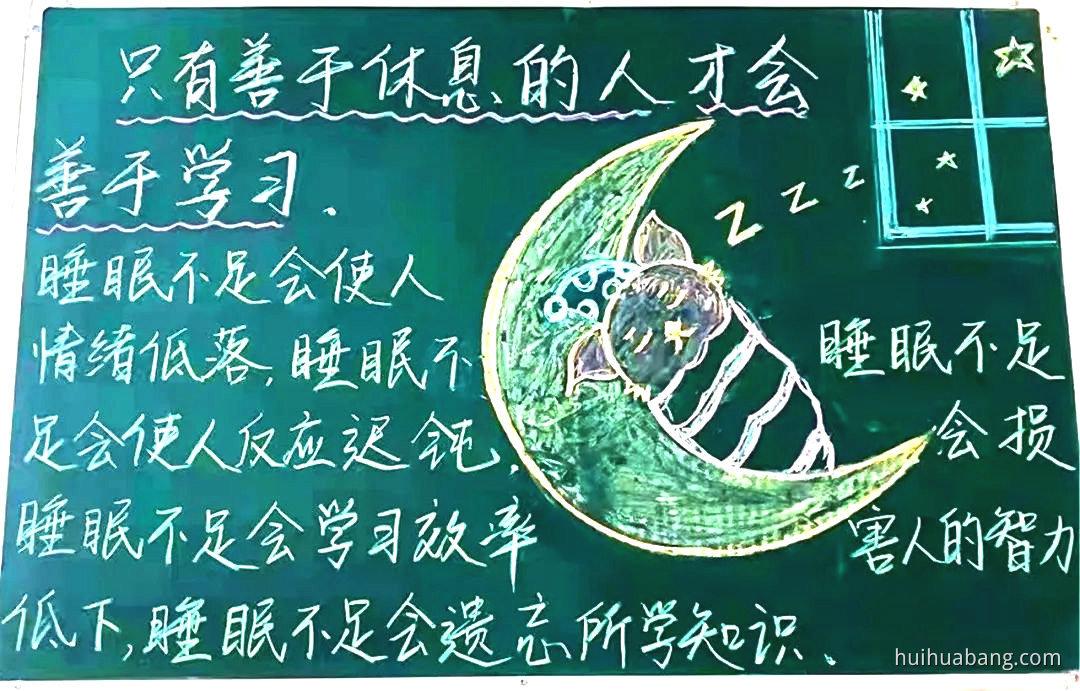 只有善于休息的人才会
善于学习.
睡眠不足会使人
情绪低落,睡眠不
足会使人反应迟钝,
睡眠不足会学习效率
低下,睡眠不足会遗忘所学知识、
睡眠不足
会损
害人的智力
z z z
huihuabang.com